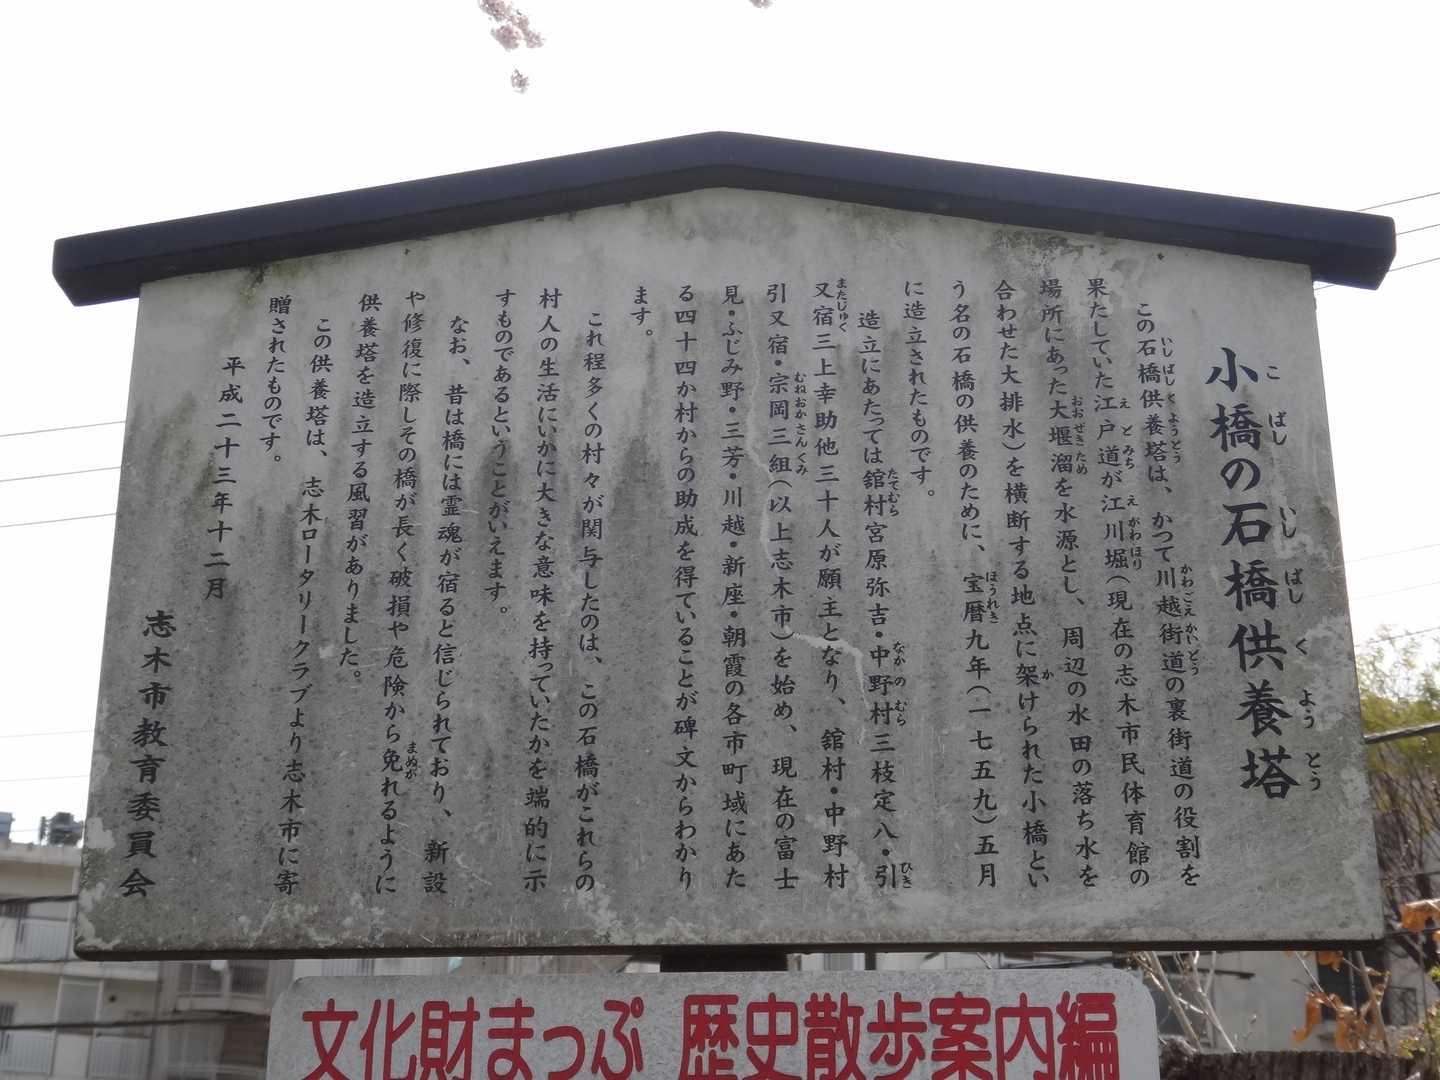 小橋の石橋供養塔
こばしのいしばしくようとう
この石橋供養塔は、かつて川越街道の裏街道の役割を
いしばしくようとう かわごえかいどう
果たしていた江戸道が江川堀(現在の志木市民体育館の
えどみち えがわほり
場所にあった大堰溜を水源とし、周辺の水田の落ち水を
おおぜきため
合わせた大排水)を横断する地点に架けられた小橋とい
か
う名の石橋の供養のために、宝暦九年(一七五九)五月
ほうれき
に造立されたものです。
造立にあたっては舘村宮原弥吉・中野村三枝定八・引
たてむら なかのむら ひき
又宿三上幸助他三十人が願主となり、舘村・中野村
またじゅく
引又宿・宗岡三組(以上志木市)を始め、現在の富士
むねおかさんくみ
見・ふじみ野・三芳・川越・新座・朝霞の各市町域にあた
る四十四か村からの助成を得ていることが碑文からわかり
ます。
これ程多くの村々が関与したのは、この石橋がこれらの
村人の生活にいかに大きな意味を持っていたかを端的に示
すものであるということがいえます。
なお、昔は橋には霊魂が宿ると信じられており、新設
や修復に際しその橋が長く破損や危険から免れるように
まぬが
供養塔を造立する風習がありました。
この供養塔は、志木ロータリークラブより志木市に寄
贈されたものです。
平成二十三年十二月
志木市教育委員会
文化財まっぷ 歴史散歩案内編